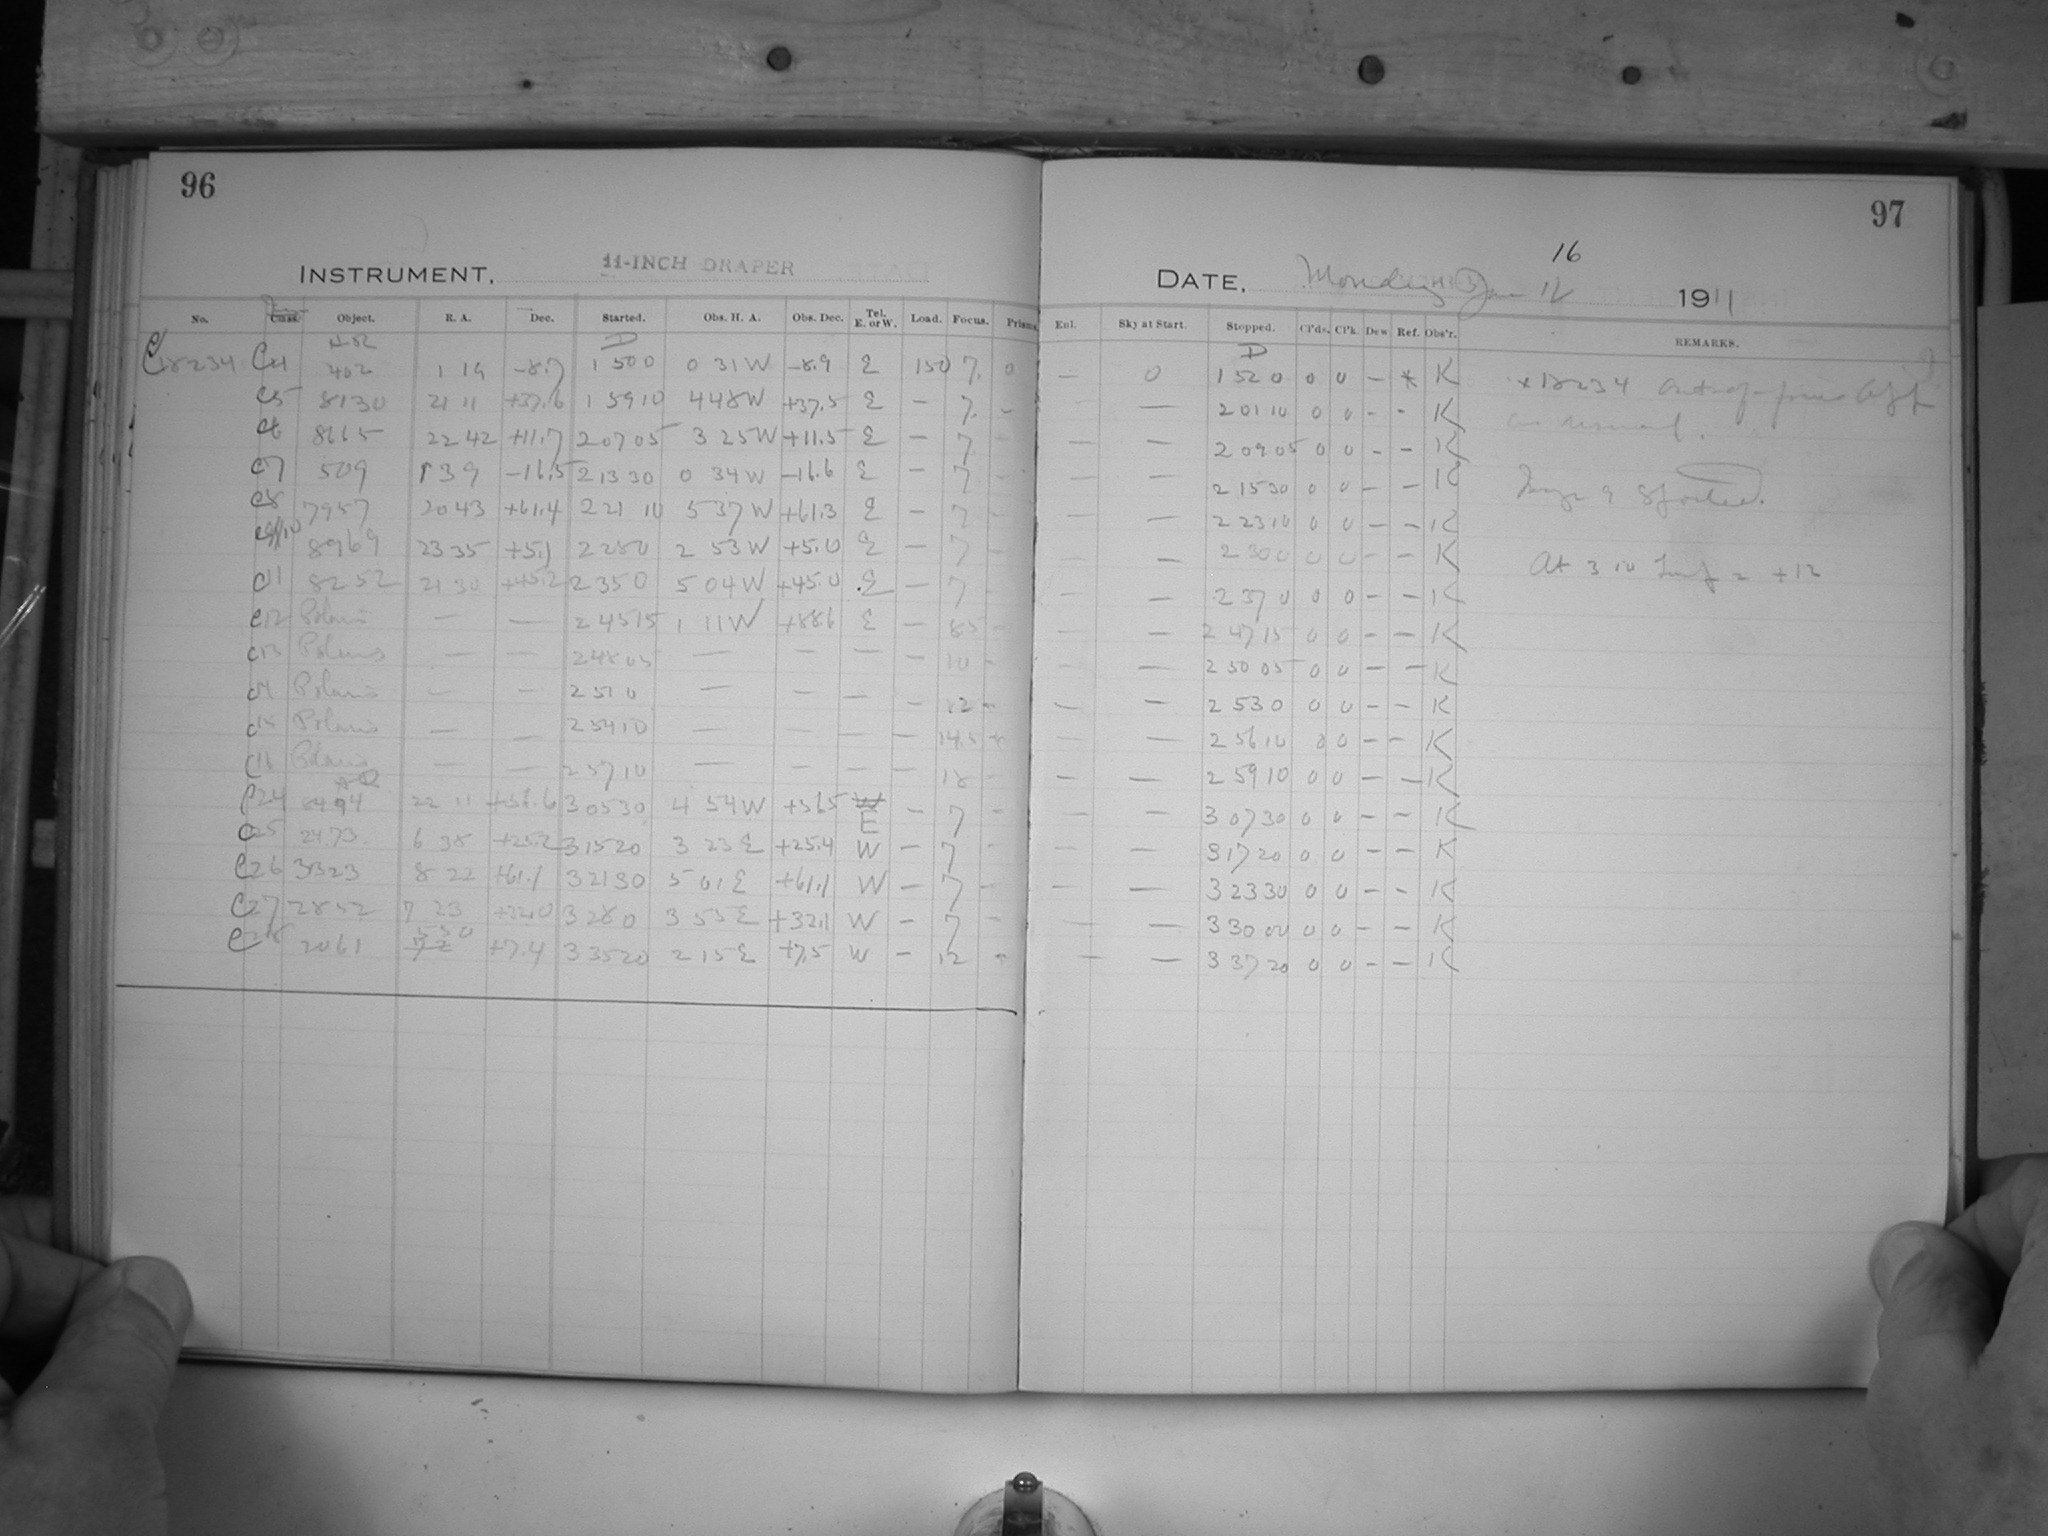 96
INSTRUMENT, 11-INCH DRAPER
No. Object. R. A. Dec. Started. Obs. H. A. Obs. Dec. Tel. E. or W. Load. Focus. Prisms
C18234 C4 402 1 19 -8.7 1 50 0 0 31 W -8.9 E 150 7. 0
C5 8130 21 11 +37.6 1 59 10 4 48 W +37.5 E — 7. -
C6 8665 22 42 +11.7 2 07 05 3 25 W +11.5 E — 7 -
C7 509 1 39 -16.5 2 13 30 0 34 W -16.6 E — 7 -
C8 7957 20 43 +61.4 2 21 10 5 37 W +61.3 E — 7 -
8969 23 35 +5.1 2 28 0 2 53 W +5.0 E — 7 -
C11 8252 21 30 +45.2 2 35 0 5 04 W +45.0 E — 7 -
C12 Polaris — — 2 45 15 1 11 W +88.6 E — 8.5 -
C13 Polaris — — 2 48 05 — — — — 10 -
C14 Polaris — — 2 51 0 — — — — 12 -
C15 Polaris — — 2 54 10 — — — — 14.5
C16 Polaris — — 2 57 10 — — — — 18 -
C24 8494 22 11 +36.6 3 05 30 4 54 W +36.5 W E — 7 -
C25 2473 6 38 +25.2 3 15 20 3 23 E +25.4 W — 7
C26 3323 8 22 +61.1 3 21 30 5 01 E +61.1 W — 7 -
C27 2852 7 23 +32.0 3 28 0 3 55 E +32.1 W — 7 -
C28 2061 5 50 +7.4 3 35 20 2 15 E +7.5 W — 12
97
16
DATE, Monday Jan 1911
Enl. Sky at Start. Stopped. Cl'ds. Cl'k. Dew Ref. Obs'r. REMARKS.
— 0 1 52 0 0 0 — * K * 18234 out of focus
— — 2 01 10 0 0 - - K as usual.
— — 2 09 05 0 0 - - K
— — 2 15 30 0 0 - - K 9 Spoiled.
— — 2 23 10 0 0 - - K
— 2 30 0 0 0 - - K At 3 10 = +12
— — 2 37 0 0 0 - - K
— — 2 47 15 0 0 - - K
— — 2 50 05 0 0 - - K
— — 2 53 0 0 0 - - K
— — 2 56 10 0 0 - - K
— — 2 59 10 0 0 - - K
— — 3 07 30 0 0 - - K
— — 3 17 20 0 0 - - K
— — 3 23 30 0 0 - - K
— — 3 30 00 0 0 - - K
— — 3 37 20 0 0 - - K